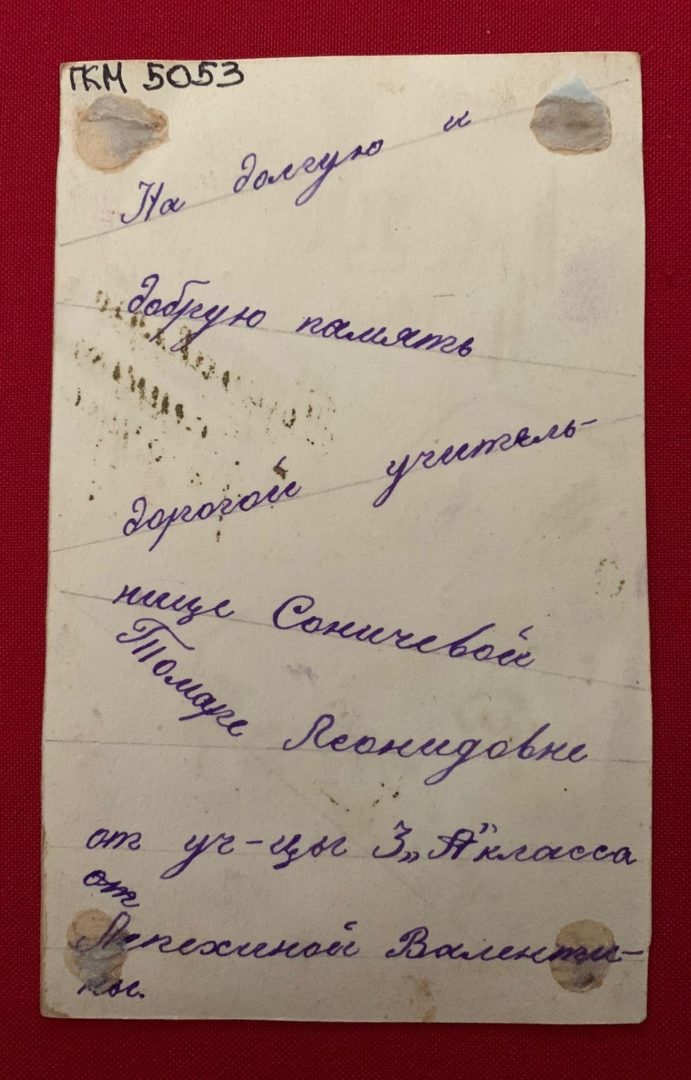 ГКМ 5053
На долгую и
добрую память
дорогой учитель-
нице Соничевой
Томаре Леонидовне
от уч-цы 3 „А" класса
от
Лепехиной Валенти-
ны.